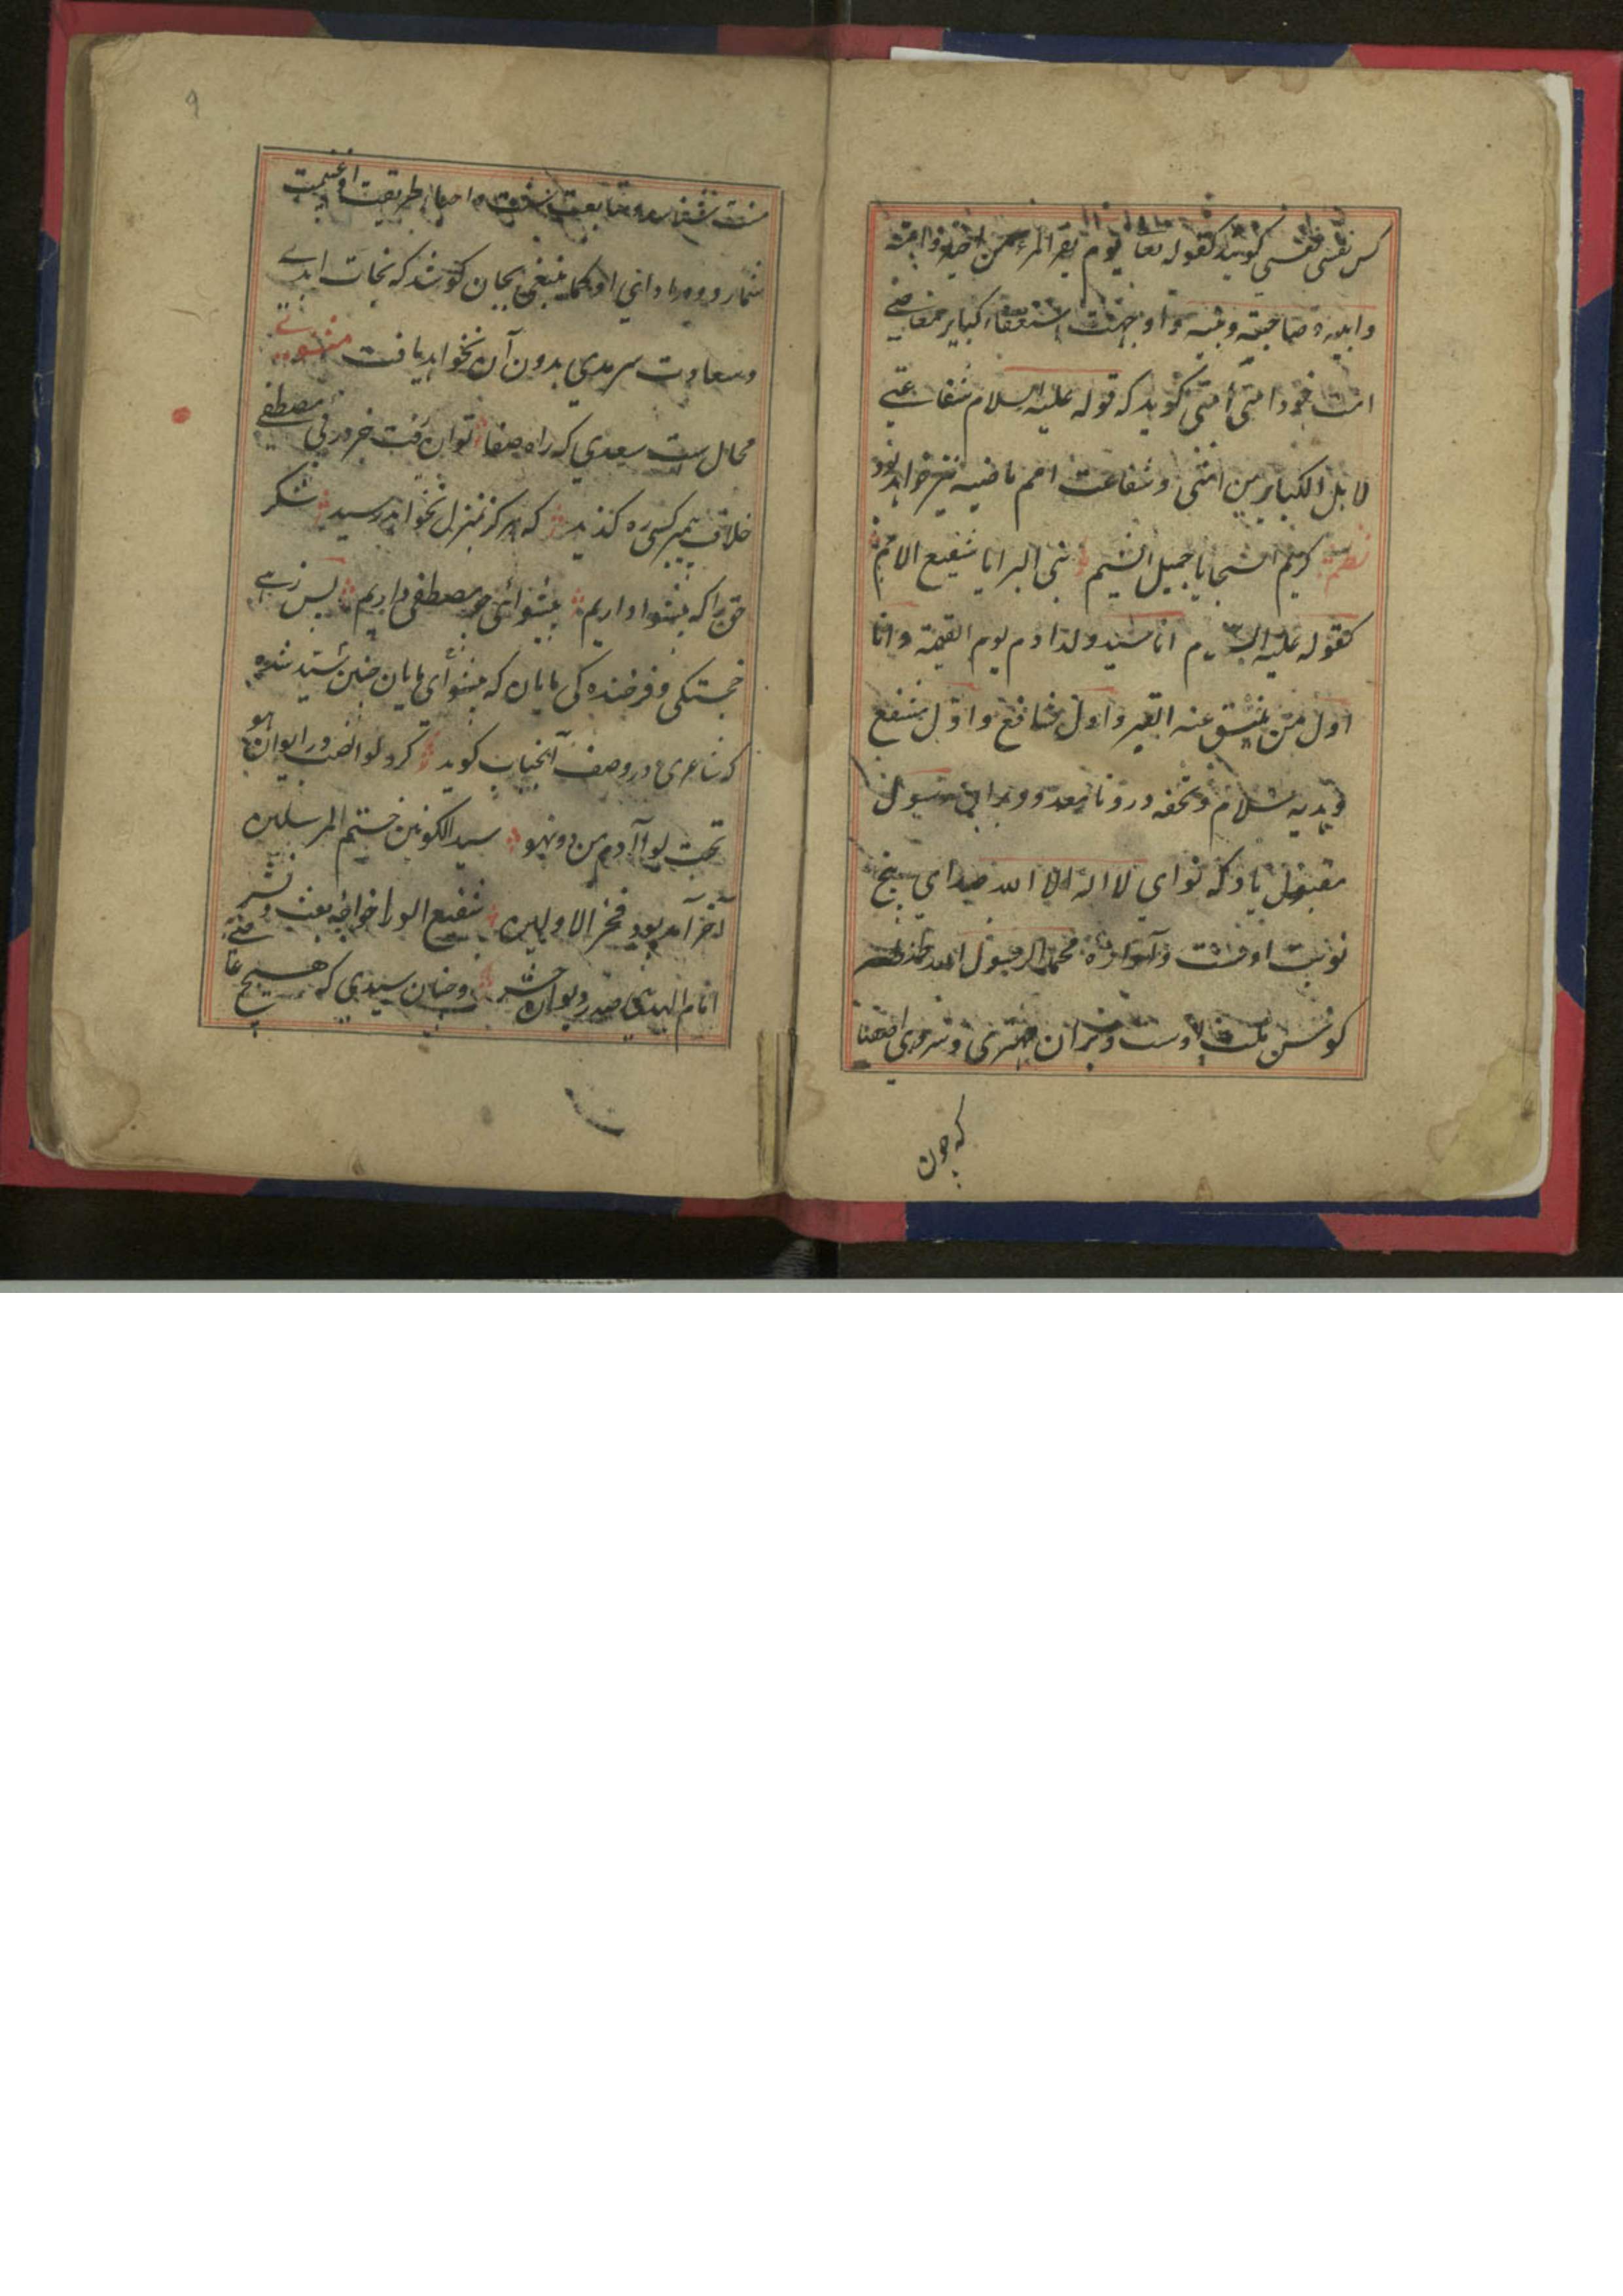 کس نفسی نفسی کویند کقوله تعا یوم یفر المرء من اخیه وامه
وابیه و صاحبته وبنیه و او بجهت استغفار کبایر معاصی
امت خود امتی امتی کوید که قوله علیه السلام شفاعتی
لاهل الکبایر من امتی و شفاعت امم ماضیه نیز خواهد بود
نظم کریم السجایا جمیل الشیم نبی البرایا شفیع الامم
کقوله علیه السلام انا سید ولد ادم یوم القیمة و انا
اول من ینشق عنه القبر و اول شافع و اول مشفع
و هدیه سلام و تحفه درود نامعدود برابن رسول
مقبول باد که نوای لا اله الا الله صدای پنج
نوبت اوست و آوازه محمد الرسول الله
کوس اوست و مهتری و سروری
که چون
۹
طریقت او غنیمت
شمارد و او کما ینبغی بجان کوشد که نجات ابدے
و سعادت سرمدی بدون آن نخواهد یافت مثنوی
محال ست سعدی که راه صفا توان رفت جز در پی مصطفی
خلاف پیمبر کسی ره کزید که هرکز بمنزل نخواهد رسید شکر
حق را که پیشوا داریم پیشوائی چو مصطفی داریم پس زہے
خجستکی و فرخنده کی مایان که پیشوای مایان چنین سید شده
که شاعری در وصف آنجناب کوید کرد لوا نصب در ایوان هو
تحت لوا آدم من دونهو سید الکونین ختم المرسلین
آخر آمد بود فخر الاولین شفیع الورا خواجه بعث و نشر
امام الهدی صدر دیوان حشر و چنان سیدی که هیچ عاصے